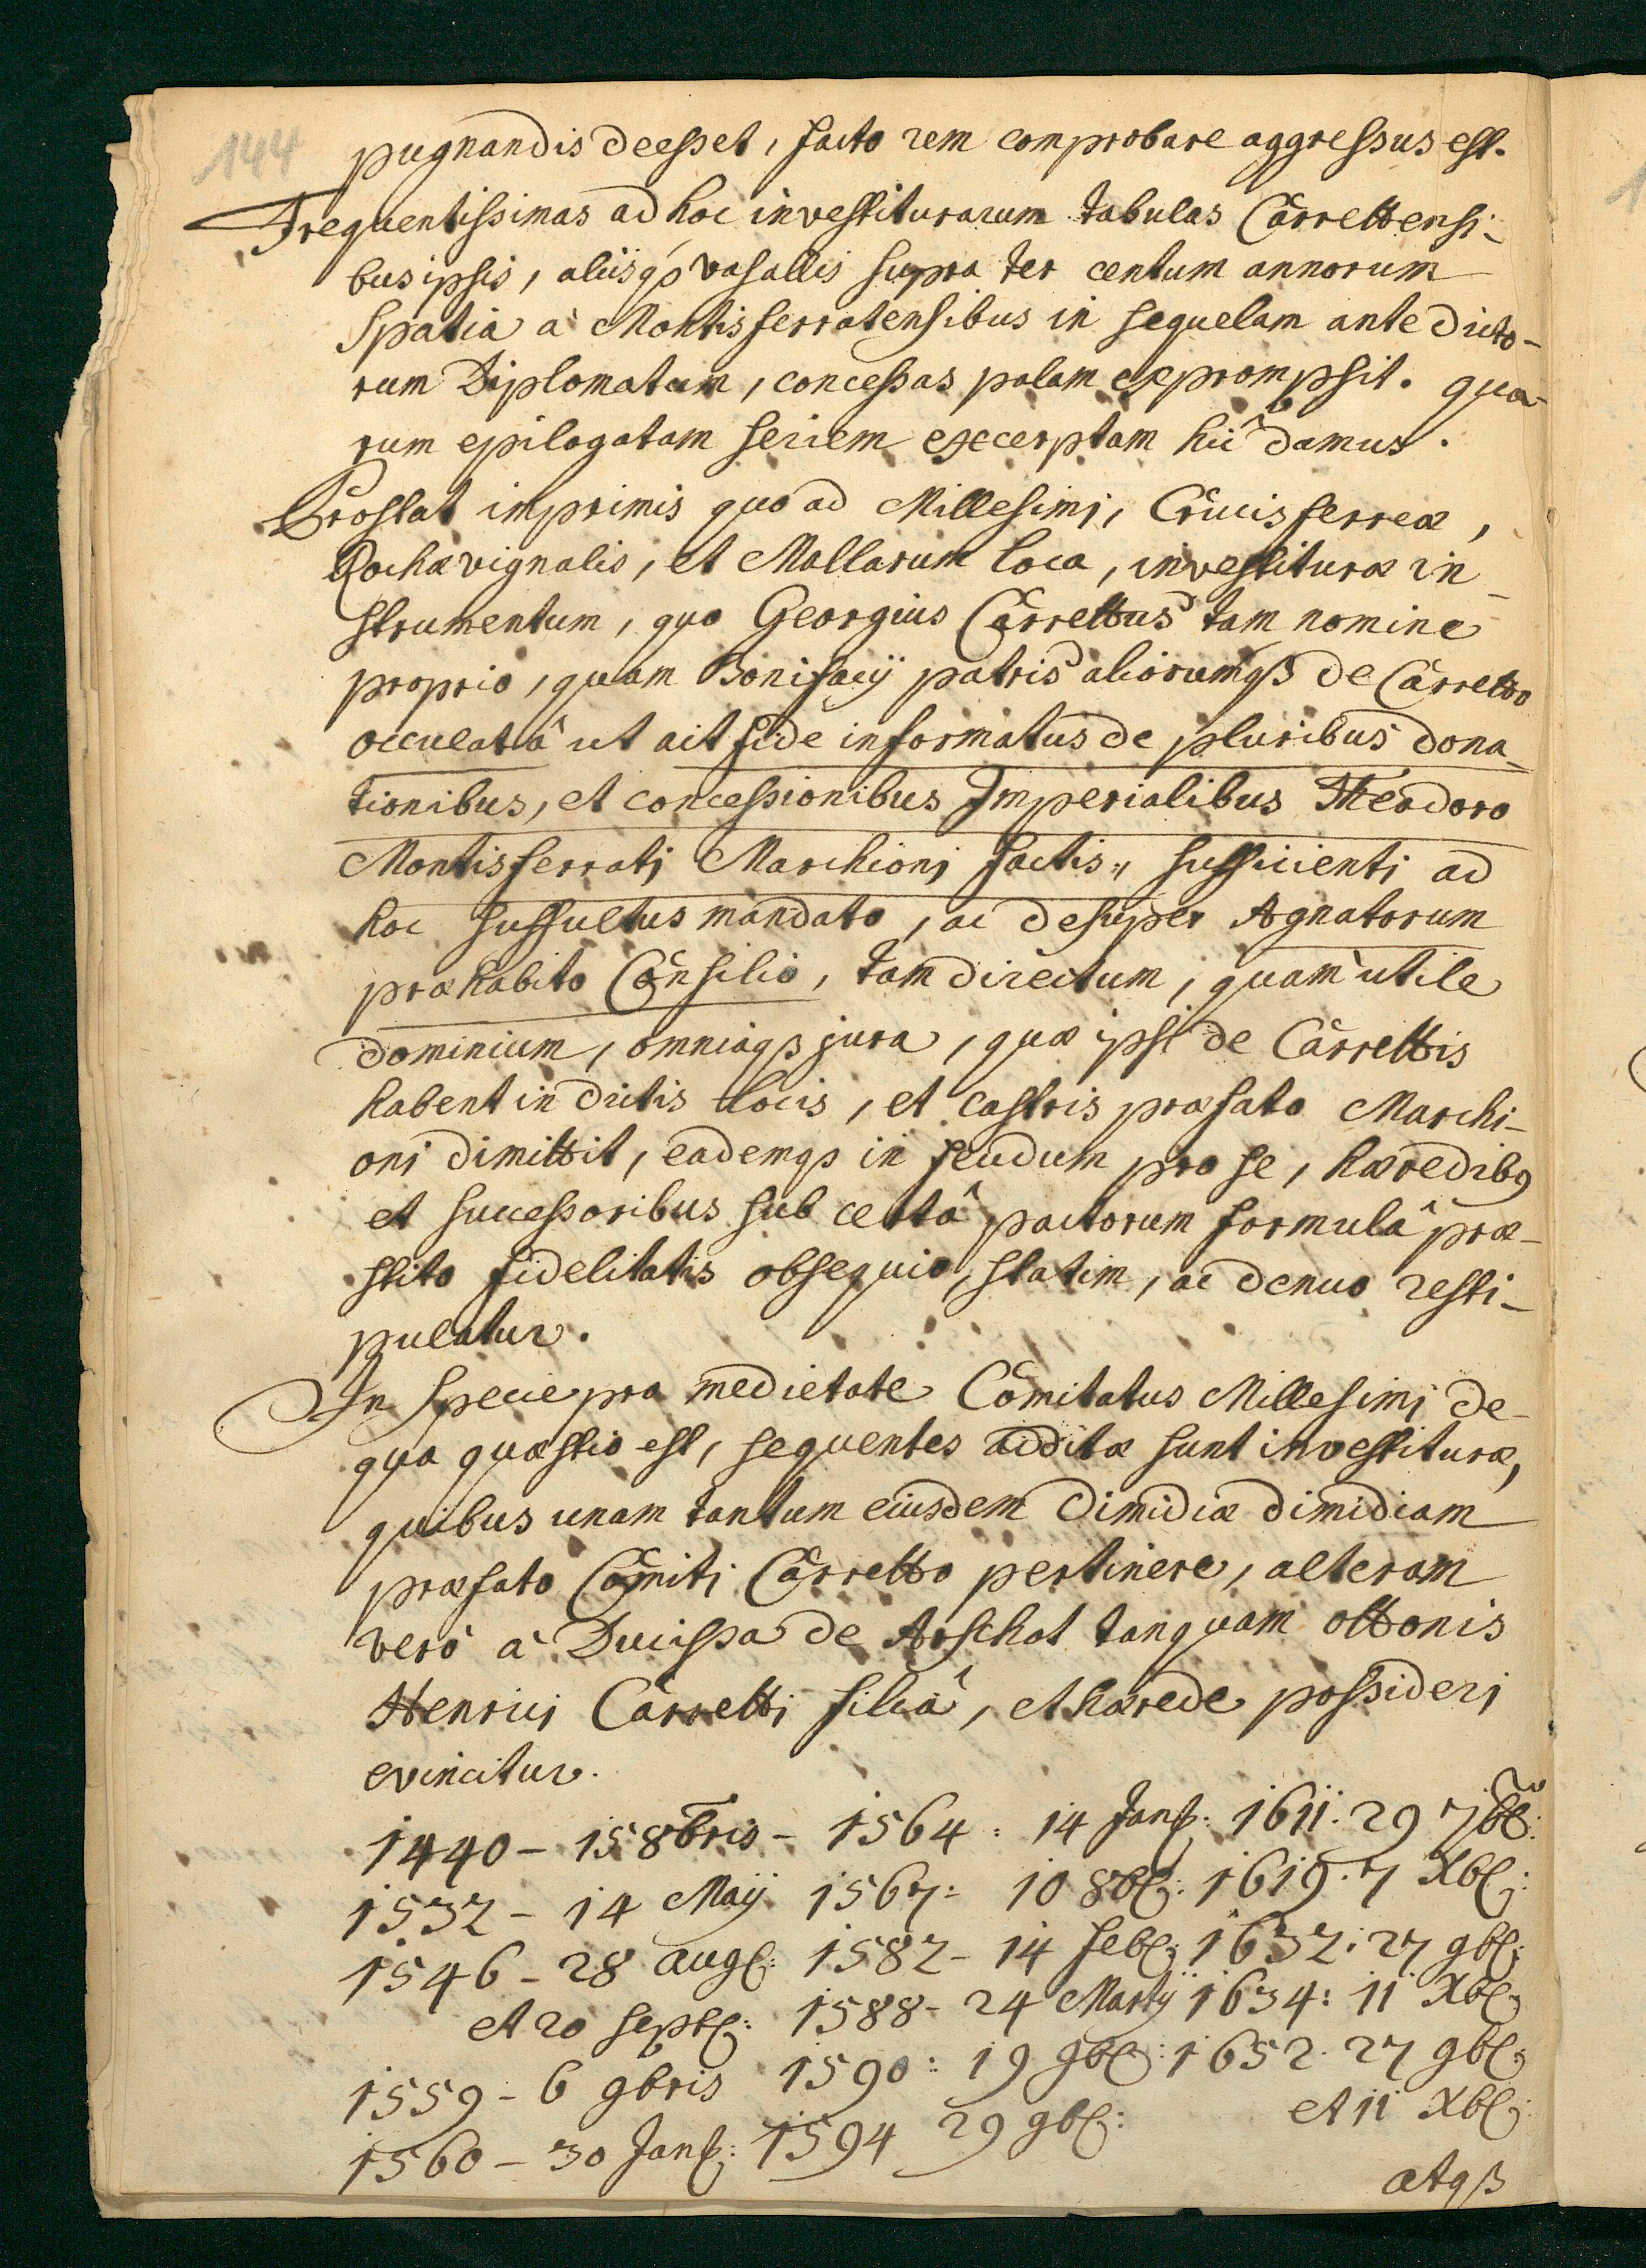 144
pugnandis deesset, facto rem comprobare aggressus est.
Frequentissimas ad hoc investiturarum tabulas Carrettensi-
bus ipsis, aliisq́ß vasallis supra ter centum annorum
spatia à Montisferratensibus in sequelam ante dicto-
rum Diplomatum, concessas palam exprompsit. qua-
rum epilogatam seriem excerptam hic damus.
Prostat imprimis quo ad Millesimi, Crucis ferreæ,
Rochævignalis, et Mallarum loca, investituræ in-
strumentum, quo Georgius Carrettus tam nomine
proprio, quam Bonifacij patris aliorumqß de Carretto
occulatâ ut ait fide informatus de pluribus dona-
tionibus, et concessionibus Imperialibus Theodoro
Montisferrati Marchioni factis,, sufficienti ad
hoc suffultus mandato, ac desuper Agnatorum
præhabito Consilio, tam directum, quam utile
dominium, omniaqß jura, quæ ipsi de Carrettis
habent in dictis locis, et castris præfato Marchi-
oni dimittit, eademqß in feudum pro se, hæredibꝰ
et successoribus sub certâ pactorum formulâ præ-
stito fidelitatis obsequio, statim, ac denuo resti-
pulatur.
In specie pro medietate Comitatus Millesimi de-
qua quæstio est, sequentes additæ sunt investituræ,
quibus unam tantum eiusdem dimidiæ dimidiam
præfato Comiti Carretto pertinere, alteram
verò à Ducissa de Arschot tanquam ottonis
Henrici Carretti filiâ, et hærede possideri
evincitur.
1440 – 15 8bris – 1564: 14 Jan: 1611: 29 7b:
1532 – 14 Maij 1567: 10 8b: 1619. 7 Xb:
1546 – 28 aug: 1582 – 14 feb: 1632: 27 9b:
et 20 sept: 1588 – 24 Martij 1634: 11 Xb:
1559 – 6 9bris 1590: 19 9b: 1652. 27 9b:
1560 – 30 Jan: 1594 29 9b: et 11 Xb:
atqß